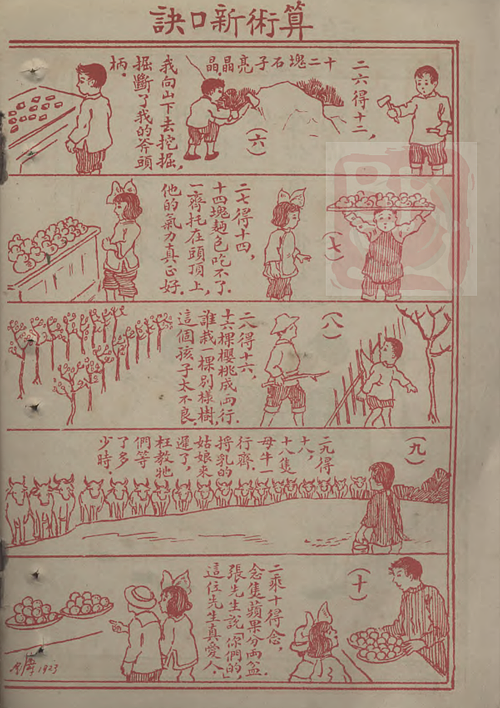 算術新口訣
二六得十二，
十二塊石子亮晶晶
（六）
我向山下去挖掘，
掘斷了我的斧頭
柄．
（七）
二七得十四，
十四塊麵包吃不了．
一齊托在頭頂上，
他的氣力真正好．
（八）
二八得十六，
十六棵櫻桃成兩行．
誰栽一棵別樣樹，
這個孩子太不良．
（九）
二九得
十八，
十八隻
母牛一
行齊．
擠乳的
姑娘來
遲了，
枉教牠
們等
了多
少時．
（十）
二乘十得念，
念隻蘋果分兩盆．
張先生說「你們的」，
這位先生真愛人．
1923